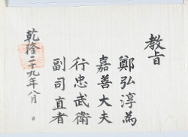 教旨
鄭弘淳為
嘉善大夫
行忠武衛
副司直者
乾隆二十九年八月 日